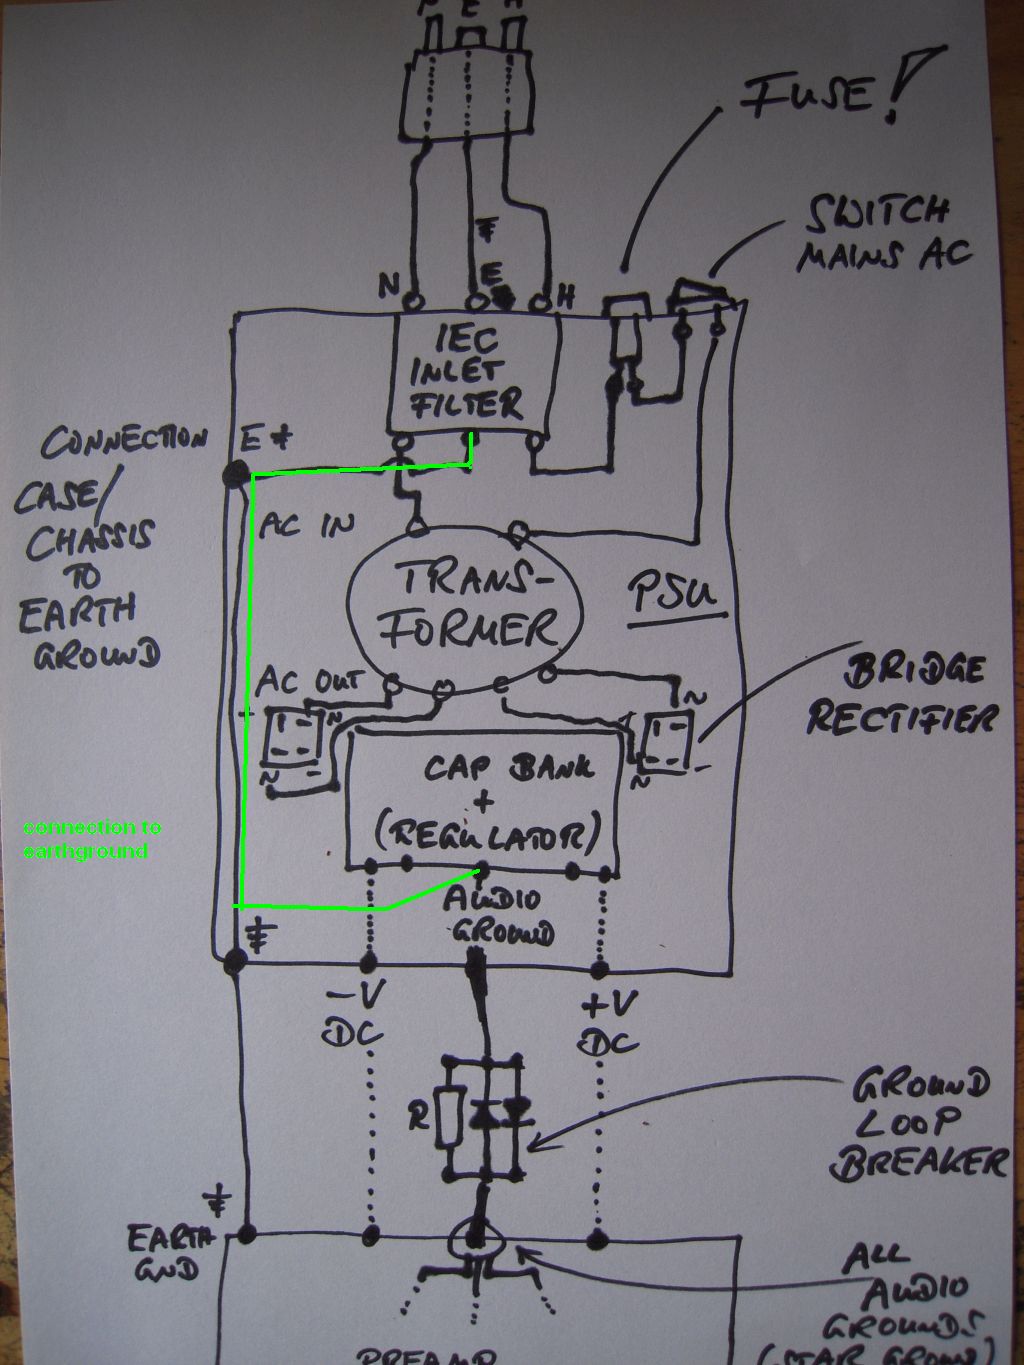 E
FUSE!
SWITCH
MAINS AC
N
E
H
IEC
INLET
FILTER
CONNECTION
CASE/
CHASSIS
TO
EARTH
GROUND
E
AC IN
TRANS-
FORMER
PSU
AC OUT
BRIDGE
RECTIFIER
+
N
N
-
N
N
-
CAP BANK
+
(REGULATOR)
connection to
earthground
AUDIO
GROUND
-V
DC
+V
DC
R
GROUND
LOOP
BREAKER
EARTH
GND
ALL
AUDIO
GROUNDS
(STAR GROUND)
PREAMP